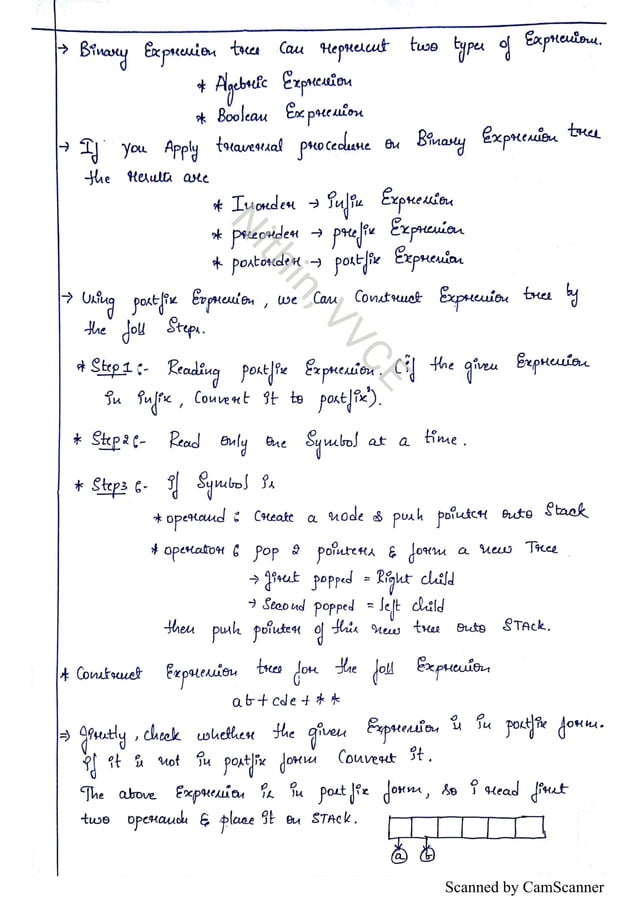 → Binary Expression trees Can represent two types of Expressions.
* Algebric Expression
* Boolean Expression
→ If you Apply traversal procedure on Binary Expression tree
the results are
* Inorder → infix Expression
* preorder → prefix Expression
* postorder → postfix Expression
→ Using postfix Expression, we Can Construct Expression tree by
the foll Steps.
* Step1 :- Reading postfix Expression. ("if the given Expression
in infix, Convert it to postfix").
* Step2 :- Read only one Symbol at a time.
* Step3 :- if Symbol is
* operand : Create a node & push pointer onto Stack
* operator : pop 2 pointers & form a new Tree
→ first popped = Right child
→ Second popped = left child
then push pointer of this new tree onto STACK.
* Construct Expression tree for the foll Expression
ab+cde+**
⇒ firstly, check whether the given Expression is in postfix form.
if it is not in postfix form Convert it.
The above Expression is in postfix form, so i read first
two operands & place it on STACK.
a b
Nithin, VVCE
Scanned by CamScanner